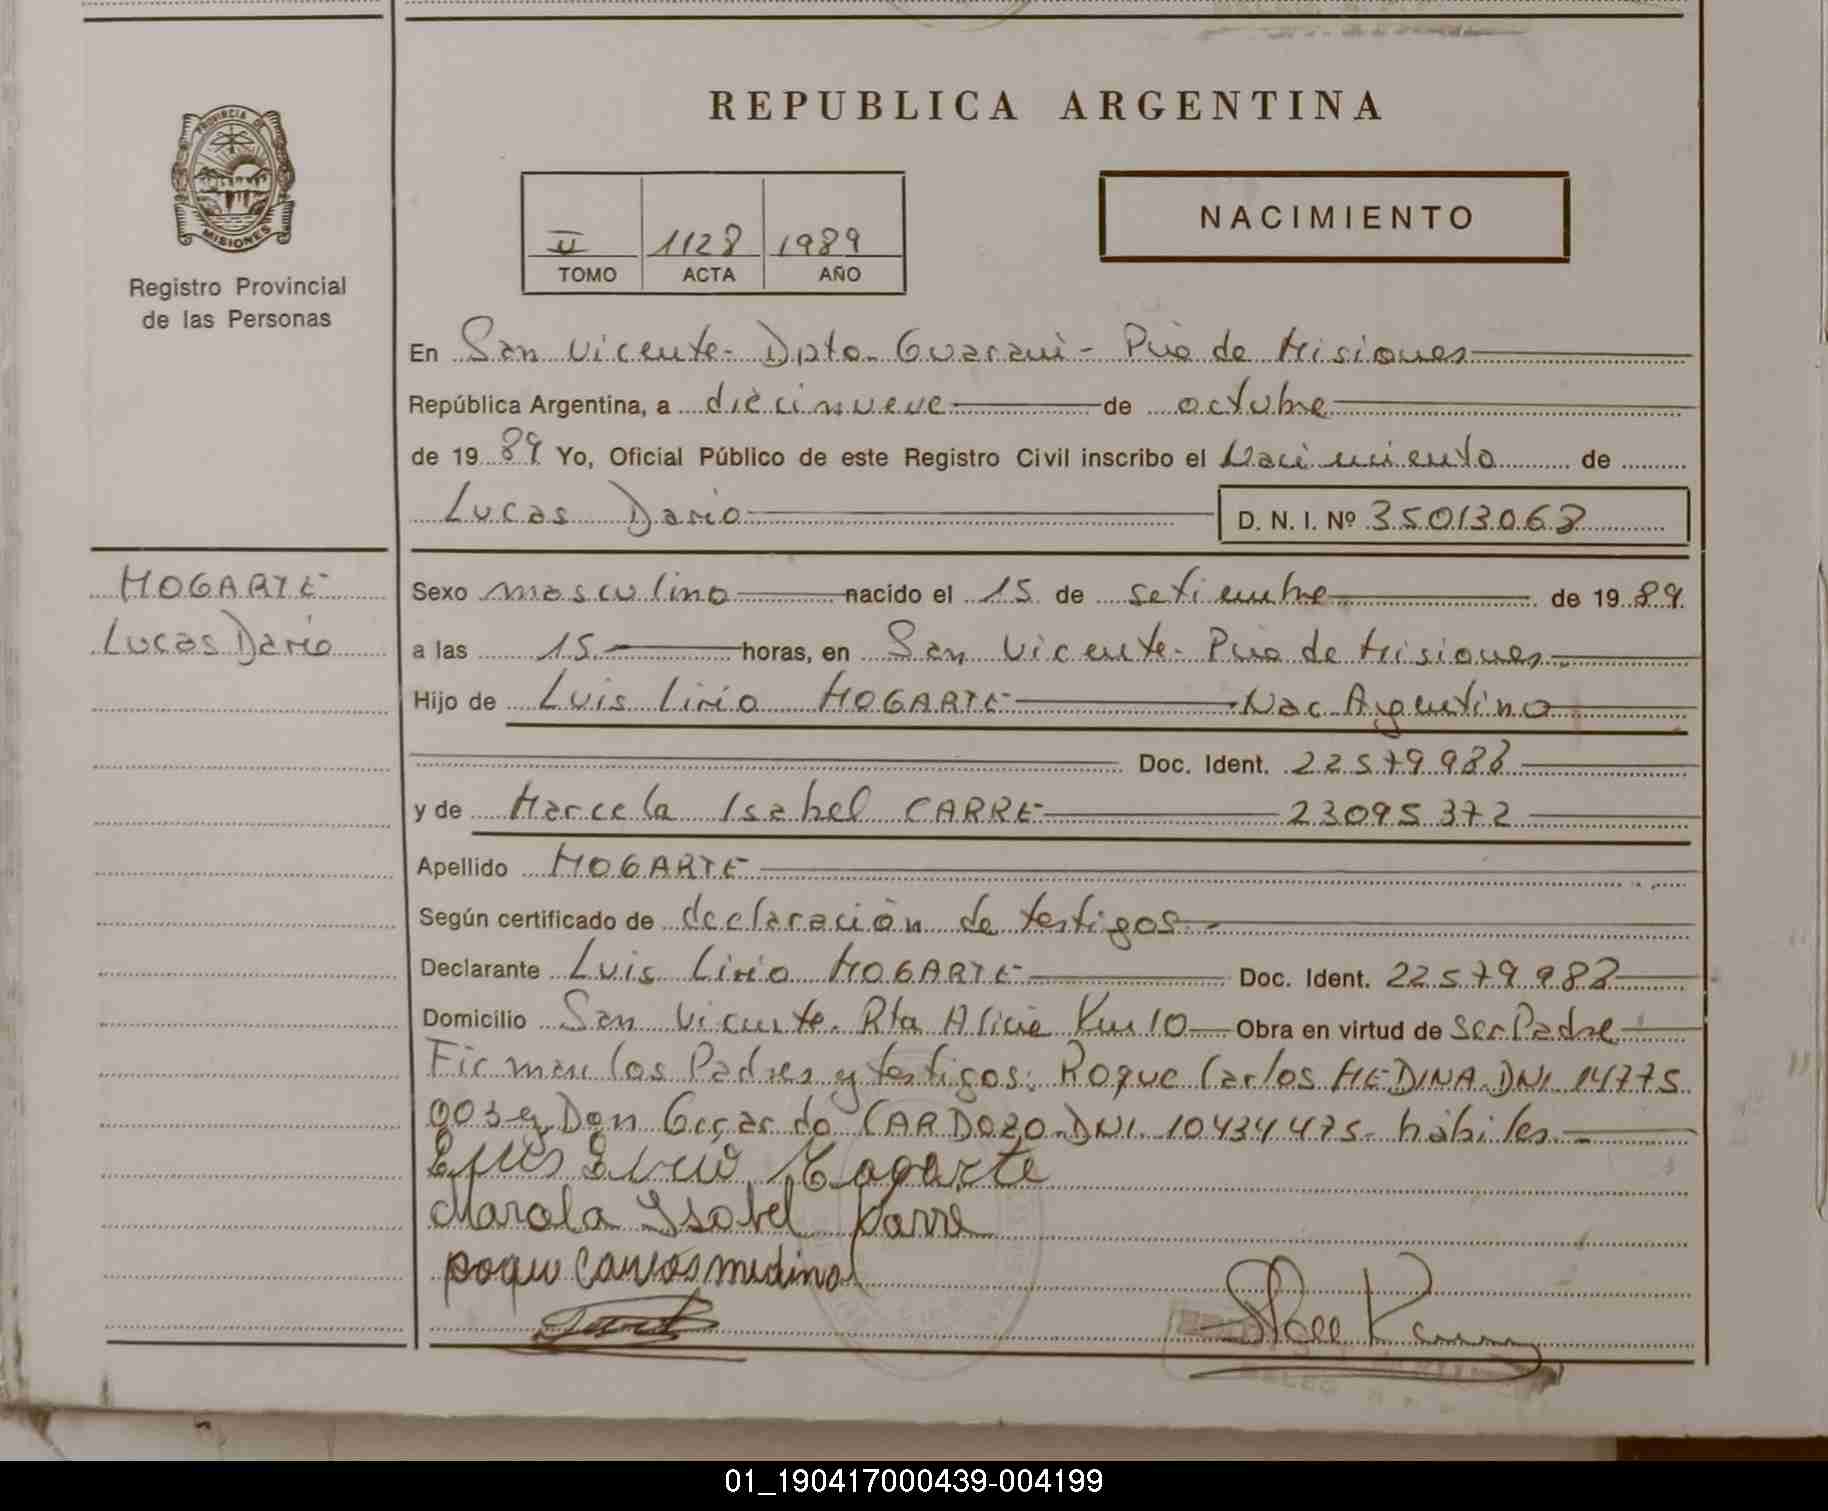 REPUBLICA ARGENTINA
PROVINCIA DE
MISIONES
Registro Provincial
de las Personas
II 1128 1989
TOMO ACTA AÑO
NACIMIENTO
En San Vicente - Dpto. Guaraní - Pcia de Misiones
República Argentina, a diecinueve de octubre
de 1989 Yo, Oficial Público de este Registro Civil inscribo el Nacimiento de
Lucas Dario D. N. I. Nº 35013068
HOGARTE
Lucas Dario
Sexo masculino nacido el 15 de setiembre de 1989
a las 15 horas, en San Vicente - Pcia de Misiones
Hijo de Luis Lirio HOGARTE Nac. Argentino
Doc. Ident. 22579988
y de Marcela Isabel CARRE 23095372
Apellido HOGARTE
Según certificado de declaración de testigos.-
Declarante Luis Lirio HOGARTE Doc. Ident. 22579988
Domicilio San Vicente. Rta Alicia Km 10 Obra en virtud de ser Padre
Firman los Padres y testigos: Roque Carlos MEDINA DNI. 14775
003 y Don Gerardo CARDOZO DNI. 10434475. hábiles.-
Hogarte
Marcela Isabel Karre
Roque Carlos medina
01_190417000439-004199